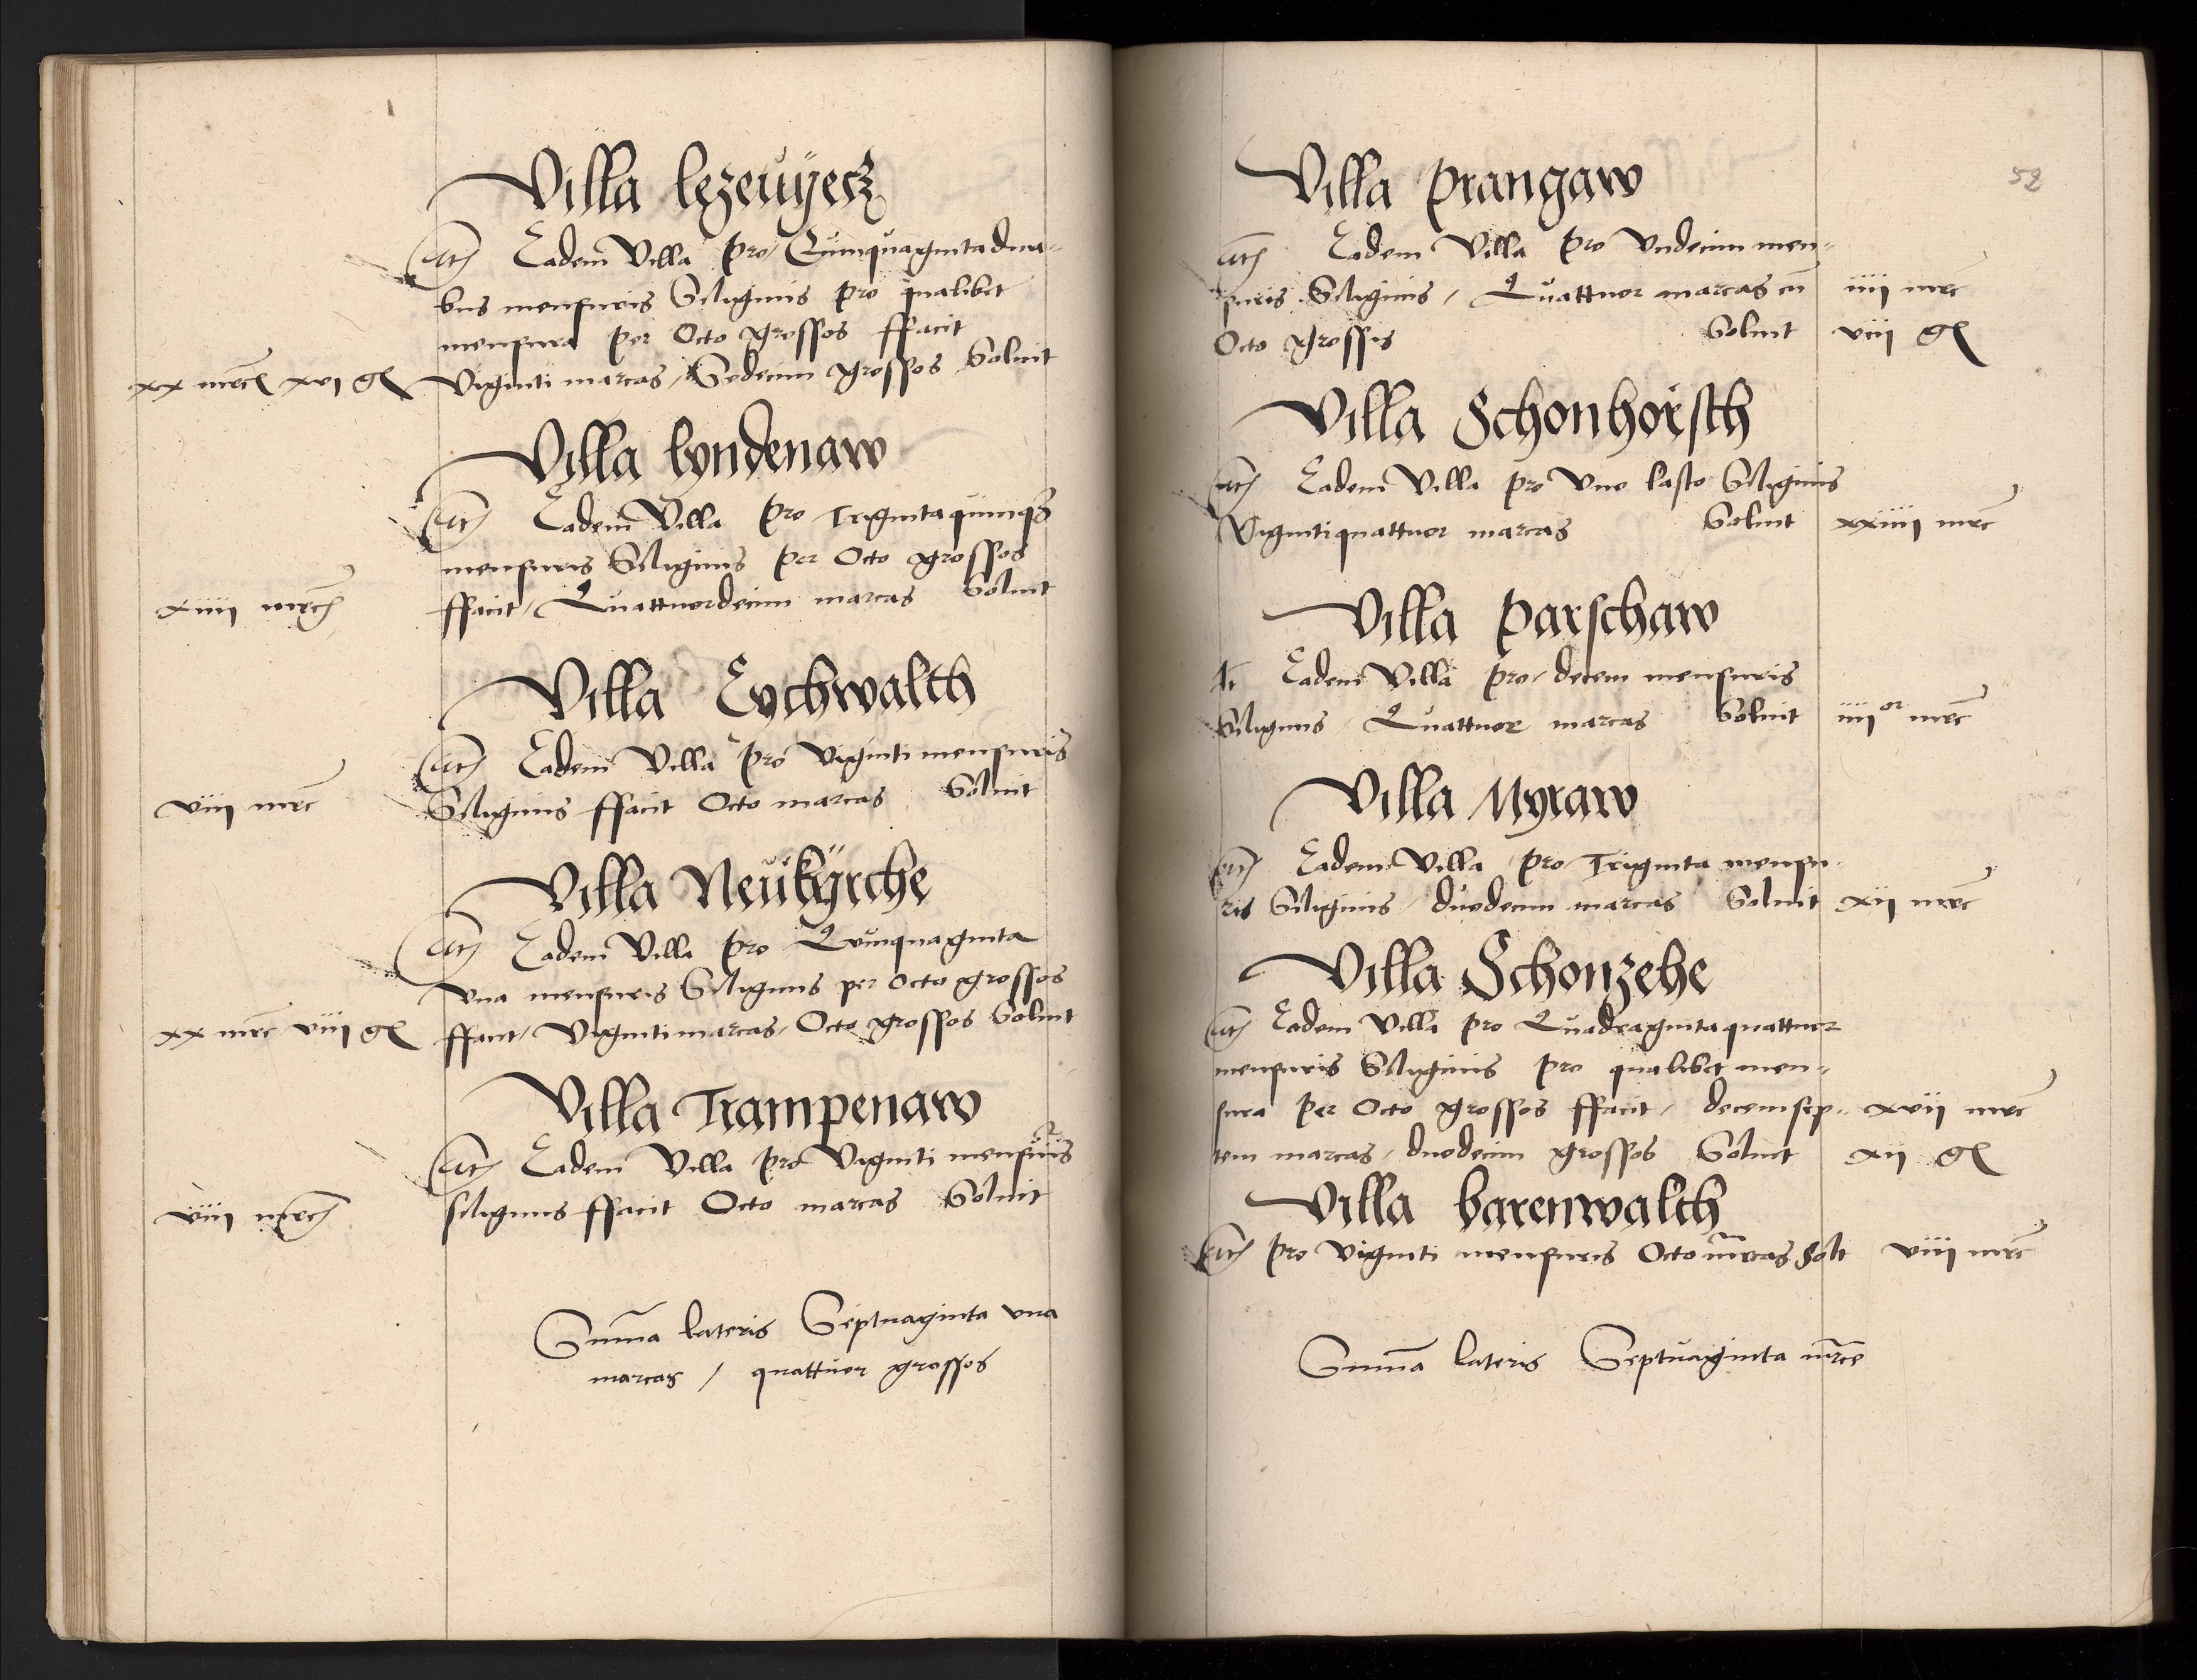 Villa lezeuÿecz
Eadem Villa pro Quinquagintadua-
bus mensuris Siliginis pro qualibet
mensura per Octo grossos ffacit
xx mrc xvj gl Viginti marcas, Sedecim grossos Soluit
Villa lyndenaw
Eadem Villa pro Trigintaquinq3
mensuris Siliginis per Octo grossos
xiiij mrc ffacit, Quattuordecim marcas Soluit
Villa Eychwalth
Eadem Villa pro Viginti mensuris
viij mrc Siliginis ffacit Octo marcas Soluit
Villa Neukÿrche
Eadem Villa pro Quinquaginta
Vna mensuris Siliginis per Octo grossos
xx mrc viij gl ffacit, Viginti marcas, Octo grossos Soluit
Villa Trampenaw
Eadem Villa pro Viginti mensuris
viij mrc siliginis ffacit Octo marcas Soluit
Suma lateris Septuaginta vna
marcas / quattuor grossos
52
Villa Prangaw
Eadem Villa pro Vndecim men-
suris Siliginis, Quattuor marcas cu iiij mrc
Octo grossis Soluit viij gl
Villa Schonhorsth
Eadem Villa pro Vno lasto Siliginis
Vigintiquattuor marcas Soluit xxiiij mrc
Villa Parschaw
Eadem Villa pro decem mensuris
Siliginis, Quattuor marcas Soluit iiij or mrc
Villa Myraw
Eadem Villa pro Triginta mensu-
ris Siliginis, duodecim marcas Soluit xij mrc
Villa Schonzehe
Eadem Villa pro Quadragintaquattuor
mensuris Siliginis pro qualibet men-
sura per Octo grossos ffacit, decemsep- xvij mrc
tem marcas, duodecim grossos Soluit xij gl
Villa barenwalth
pro Viginti mensuris Octo mrcas Solt viij mrc
Suma lateris Septuaginta mrce